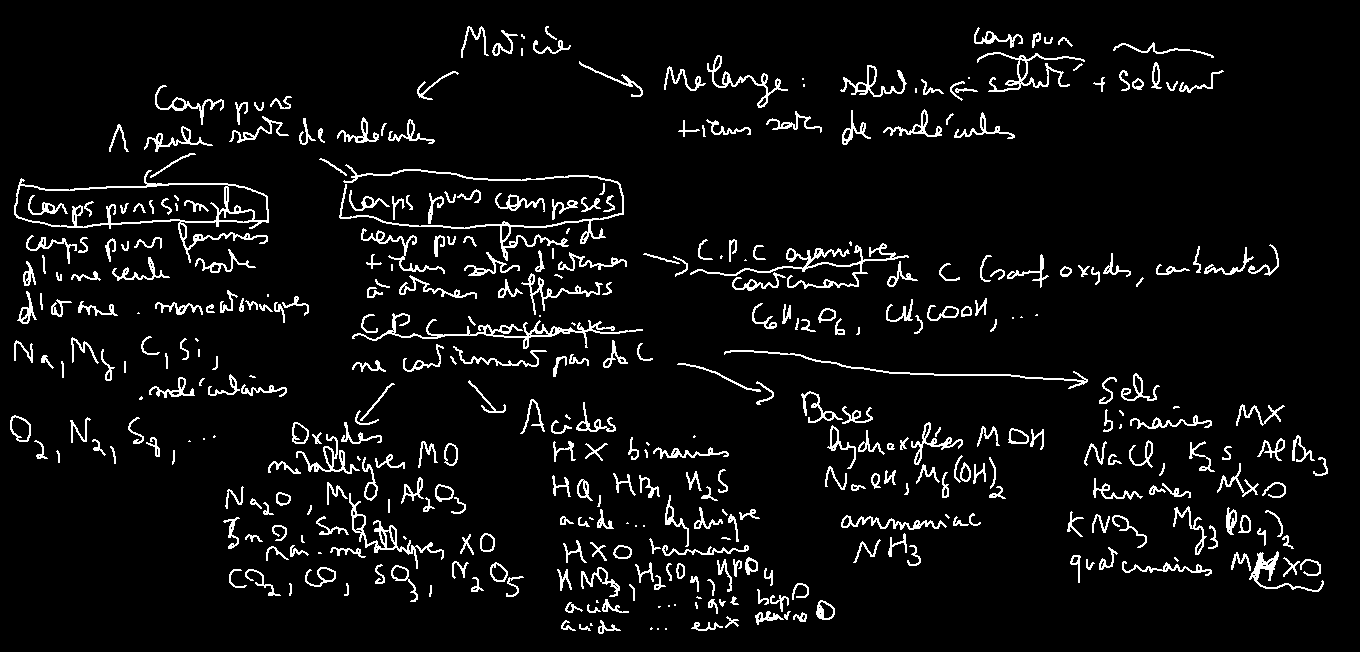 Matière
corps pur
Mélange : solution ← soluté + solvant
+ieurs sortes de molécules
Corps purs
1 seule sorte de molécules
Corps purs simples
corps purs formés
d'une seule sorte
d'atome . monoatomiques
Na, Mg, C, Si,
. moléculaires
O2, N2, S8, ...
Corps purs composés
corps pur formé de
+ieurs sortes d'atomes
à atomes différents
C.P.C inorganiques
ne contiennent pas de C
C.P.C organique
contenant de C (sauf oxydes, carbonates)
C6H12O6, CH3COOH, ...
Oxydes
métalliques MO
Na2O, MgO, Al2O3
SnO, SnO2
non-métalliques XO
CO2, CO, SO3, N2O5
Acides
HX binaires
HCl, HBr, H2S
acide ... hydrique
HXO ternaire
HNO3, H2SO4, H3PO4
acide ... ique bcp O
acide ... eux peu O
Bases
hydroxylées MOH
NaOH, Mg(OH)2
ammoniac
NH3
Sels
binaires MX
NaCl, K2S, AlBr3
ternaires MXO
KNO3 Mg3(PO4)2
quaternaires MHXO